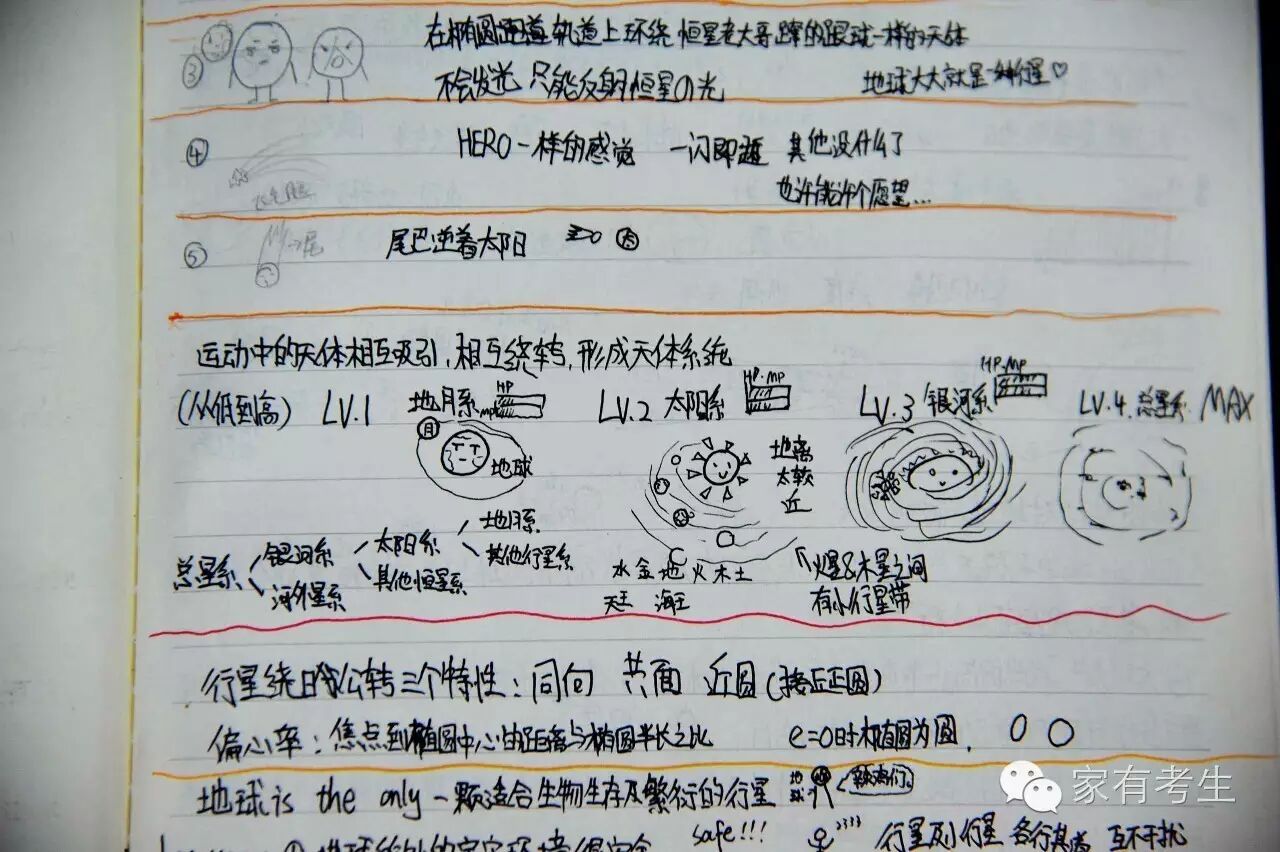 ③ 在椭圆跑道轨道上环绕恒星老大哥蹿的跟球一样的天体
不会发光 只能反射恒星の光 地球大大就是一种行星♡
④ HERO一样的感觉 一闪即逝 其他没什么了
也许能许个愿望...
⑤ 尾 尾巴逆着太阳
运动中的天体相互吸引,相互绕转,形成天体系统
(从低到高) LV.1 地月系 HP MP LV.2 太阳系 HP.MP LV.3 银河系 HP.MP LV.4.总星系 MAX
月 地球 地离太较近
总星系 银河系 河外星系 太阳系 其他恒星系 地月系 其他行星系
水金地火木土 天王 海王
火星&木星之间有小行星带
行星绕日公转三个特性:同向 共面 近圆(接近正圆)
偏心率:焦点到椭圆中心的距离与椭圆半长之比 e=0时椭圆为圆.
地球is the only一颗适合生物生存及繁衍的行星 地球
safe!!! 2333 行星及行星 各行其道 互不干扰
家有考生